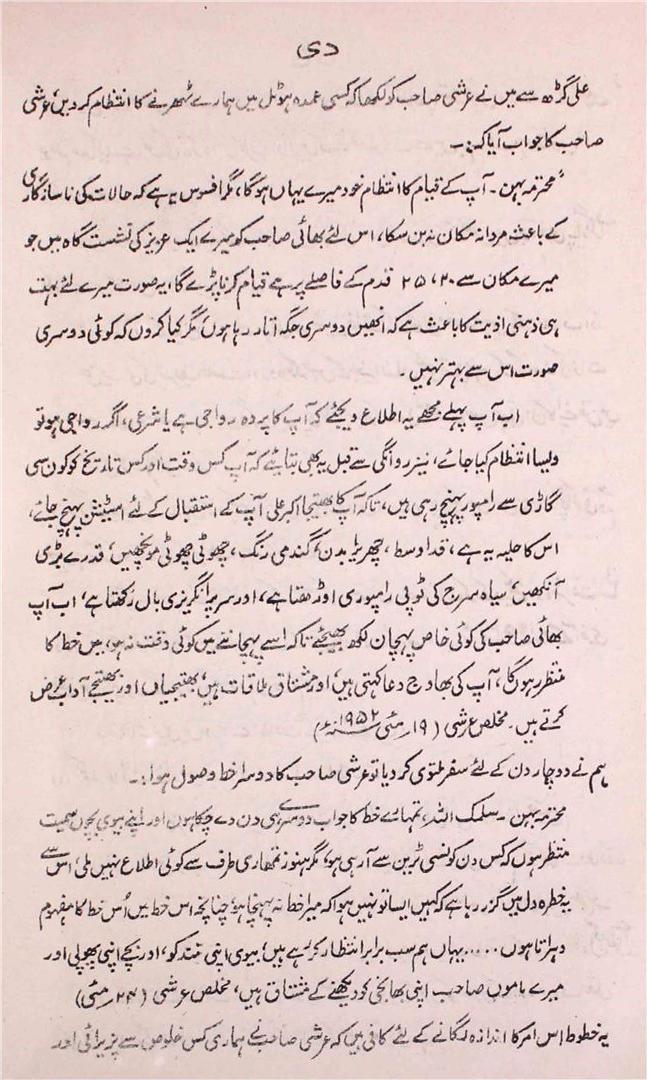 دی
علی گڑھ سے میں نے عرشی صاحب کو لکھا کہ کسی عمدہ ہوٹل میں ہمارے ٹھہرنے کا انتظام کر دیں، عرشی
صاحب کا جواب آیا کہ:۔
"محترمہ بہن۔ آپ کے قیام کا انتظام خود میرے یہاں ہوگا، مگر افسوس یہ ہے کہ حالات کی ناسازگاری
کے باعث مردانہ مکان نہ بن سکا، اس لئے بھائی صاحب کو میرے ایک عزیز کی نشست گاہ میں جو
میرے مکان سے ۲۰، ۲۵ قدم کے فاصلے پر ہے قیام کرنا پڑے گا، یہ صورت میرے لئے بہت
ہی ذہنی اذیت کا باعث ہے کہ انھیں دوسری جگہ اتار رہا ہوں، مگر کیا کروں کہ کوئی دوسری
صورت اس سے بہتر نہیں۔
اب آپ پہلے مجھے یہ اطلاع دیجئے کہ آپ کا پردہ رواجی ہے یا شرعی، اگر رواجی ہو تو
ویسا انتظام کیا جائے، نیز روانگی سے قبل یہ بھی بتائیے کہ آپ کس وقت اور کس تاریخ کو کون سی
گاڑی سے رامپور پہنچ رہی ہیں، تاکہ آپ کا بھتیجا اکبر علی آپ کے استقبال کے لئے اسٹیشن پہنچ جائے،
اس کا حلیہ یہ ہے، قد اوسط، چھریرا بدن، گندمی رنگ، چھوٹی چھوٹی مونچھیں، قدرے بڑی
آنکھیں، سیاہ سرج کی ٹوپی رامپوری اوڑھتا ہے، اور سر پر انگریزی بال رکھتا ہے، اب آپ
بھائی صاحب کی کوئی خاص پہچان لکھ بھیجئے تاکہ اسے پہچاننے میں کوئی دقت نہ ہو، میں خط کا
منتظر رہوں گا، آپ کی بھاوج دعا کہتی ہیں، اور مشتاق ملاقات ہیں، بھتیجیاں اور بھتیجے آداب عرض
کرتے ہیں۔ مخلص عرشی (۱۹؍ مئی ۱۹۵۲ء)
ہم نے دو چار دن کے لئے سفر ملتوی کر دیا تو عرشی صاحب کا دوسرا خط وصول ہوا:۔
محترمہ بہن۔ سلمک اللہ، تمہارے خط کا جواب دوسرے ہی دن دے چکا ہوں اور اپنے بیوی بچوں سمیت
منتظر ہوں کہ کس دن کونسی ٹرین سے آ رہی ہو، مگر ہنوز تمھاری طرف سے کوئی اطلاع نہیں ملی، اس سے
یہ خطرہ دل میں گزر رہا ہے کہ کہیں ایسا تو نہیں ہوا کہ میرا خط نہ پہنچا ہو، چنانچہ اس خط میں اُس خط کا مفہوم
دہراتا ہوں ..... یہاں ہم سب برابر انتظار کر رہے ہیں، بیوی اپنی نند کو، اور بچے اپنی پھوپی اور
میرے ماموں صاحب اپنی بھانجی کو دیکھنے کے مشتاق ہیں، مخلص عرشی (۲۴؍ مئی)
یہ خطوط اِس امر کا اندازہ لگانے کے لئے کافی ہیں کہ عرشی صاحب نے ہماری کس خلوص سے پذیرائی اور